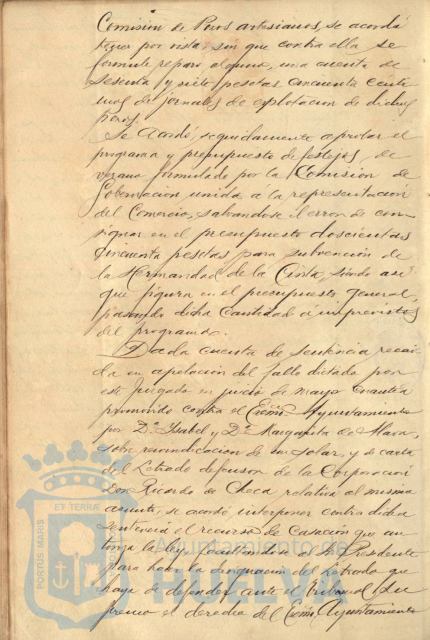 Comisión de Pozos artesianos, se acordó
tener por vista sin que contra ella se
formule reparo alguno, una cuenta de
sesenta y siete pesetas cincuenta centi
mos de jornales de esplotacion de dichos
pozos.
Se acordó, seguidamente aprobar el
programa y presupuesto de festejos de
verano formulado por la Comisión de
Gobernación, unida á la representación
del Comercio, salvandose el error de con
signar en el presupuesto doscientas
cincuenta pesetas para subvención de
la Hermandad de la Cinta, siendo así
que figura en el presupuesto general,
pasando dicha cantidad á imprevistos
del programa.
Dada cuenta de sentencia recai
da en apelación del fallo dictado por
este Juzgado en juicio de mayor cuantia
promovido contra el Excmo Ayuntamiento
por Dª Ysabel y Dª Margarita de Mora,
sobre reivindicación de un solar, y de carta
del Letrado defensor de la Corporación
Don Ricardo de Checa relativa al mismo
asunto, se acordó interponer contra dicha
sentencia el recurso de casación que au
toriza la ley, facultandose al Sr Presidente
para hacer la designación del Letrado que
haya de defender ante el Tribunal Su
premo el derecho del Excmo Ayuntamiento
PORTUS MARIS ET TERRAE
Ayuntamiento de
HUELVA